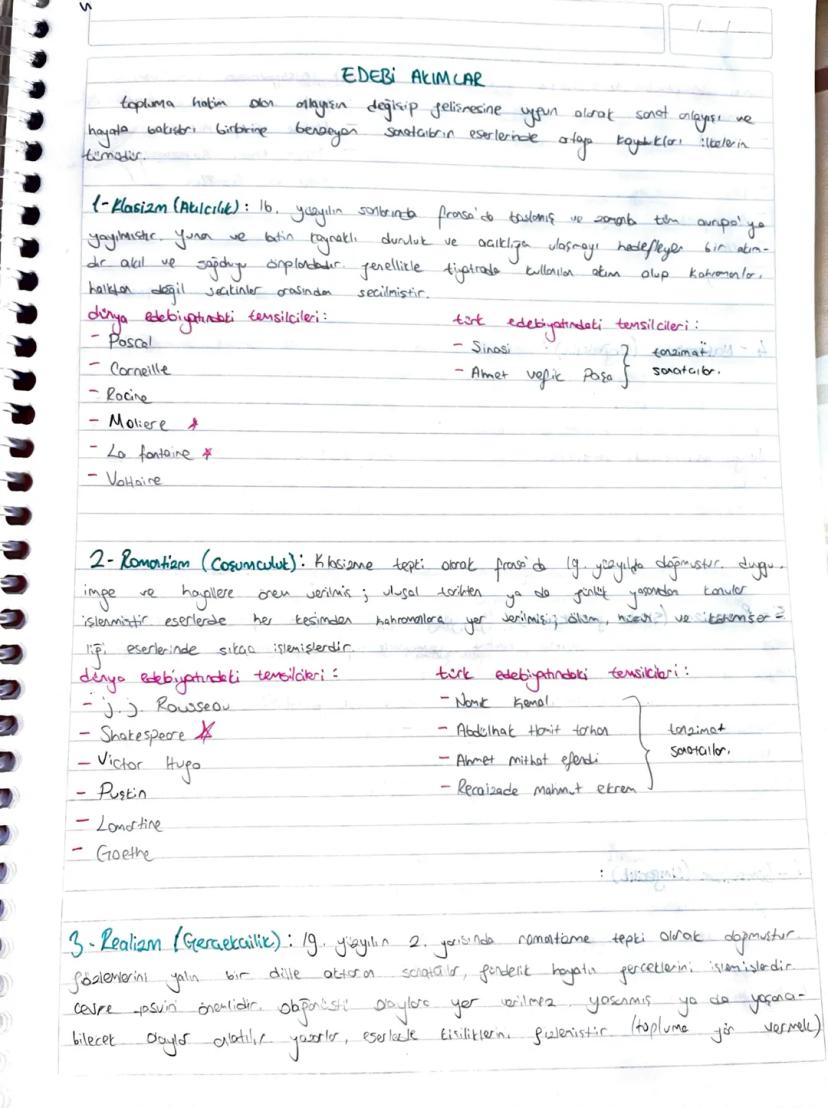 EDEBİ AKIMLAR
topluma hakim olan anlayışın değişip gelişmesine uygun olarak sanat anlayışı ve
hayata bakışları birbirine benzeyen sanatçıların eserlerinde ortaya koydukları ilkelerin
tümüdür.
1-Klasizm (Akılcılık): 16. yüzyılın sonlarında fransa'da başlamış ve zamanla tüm avrupa'ya
yayılmıştır. yunan ve latin kaynaklı duruluk ve açıklığa ulaşmayı hedefleyen bir akım-
dır akıl ve sağduyu önplandadır. genellikle tiyatroda kullanılan akım olup kahramanlar,
halktan değil seçkinler arasından seçilmiştir.
dünya edebiyatındaki temsilcileri:
türk edebiyatındaki temsilcileri:
- Pascal
- Şinasi
- Corneille
- Ahmet vefik Paşa
tanzimat
sanatçıları.
- Racine
- Moliere
- La fontaine
- Voltaire
2-Romantizm (Coşumculuk): Klasizme tepki olarak fransa'da 19. yüzyılda doğmuştur. duygu,
imge ve hayallere önem verilmiş; ulusal tarihten ya da günlük yaşamdan konular
işlenmiştir eserlerde her kesimden kahramanlara yer verilmiş; ölüm, ve
liği eserlerinde sıkça işlemişlerdir.
dünya edebiyatındaki temsilcileri:
türk edebiyatındaki temsilcileri:
- j.j. Rousseau
- Namık Kemal
- Shakespeare
- Abdülhak Hamit tarhan
- Victor Hugo
- Ahmet mithat efendi
- Puşkin
- Recaizade mahmut ekrem
tanzimat
sanatçıları.
- Lamartine
- Goethe
3-Realizm (Gerçekçilik): 19. yüzyılın 2. yarısında romantizme tepki olarak doğmuştur.
gözlemlerini yalın bir dille aktaran sanatçılar, gündelik hayatın gerçeklerini işlemişlerdir.
çevre tasviri önemlidir. olağanüstü olaylara yer verilmez. yaşanmış ya da yaşana-
bilecek olaylar anlatılır yazarlar, eserlerde kişiliklerini gizlemiştir (topluma yön vermek)